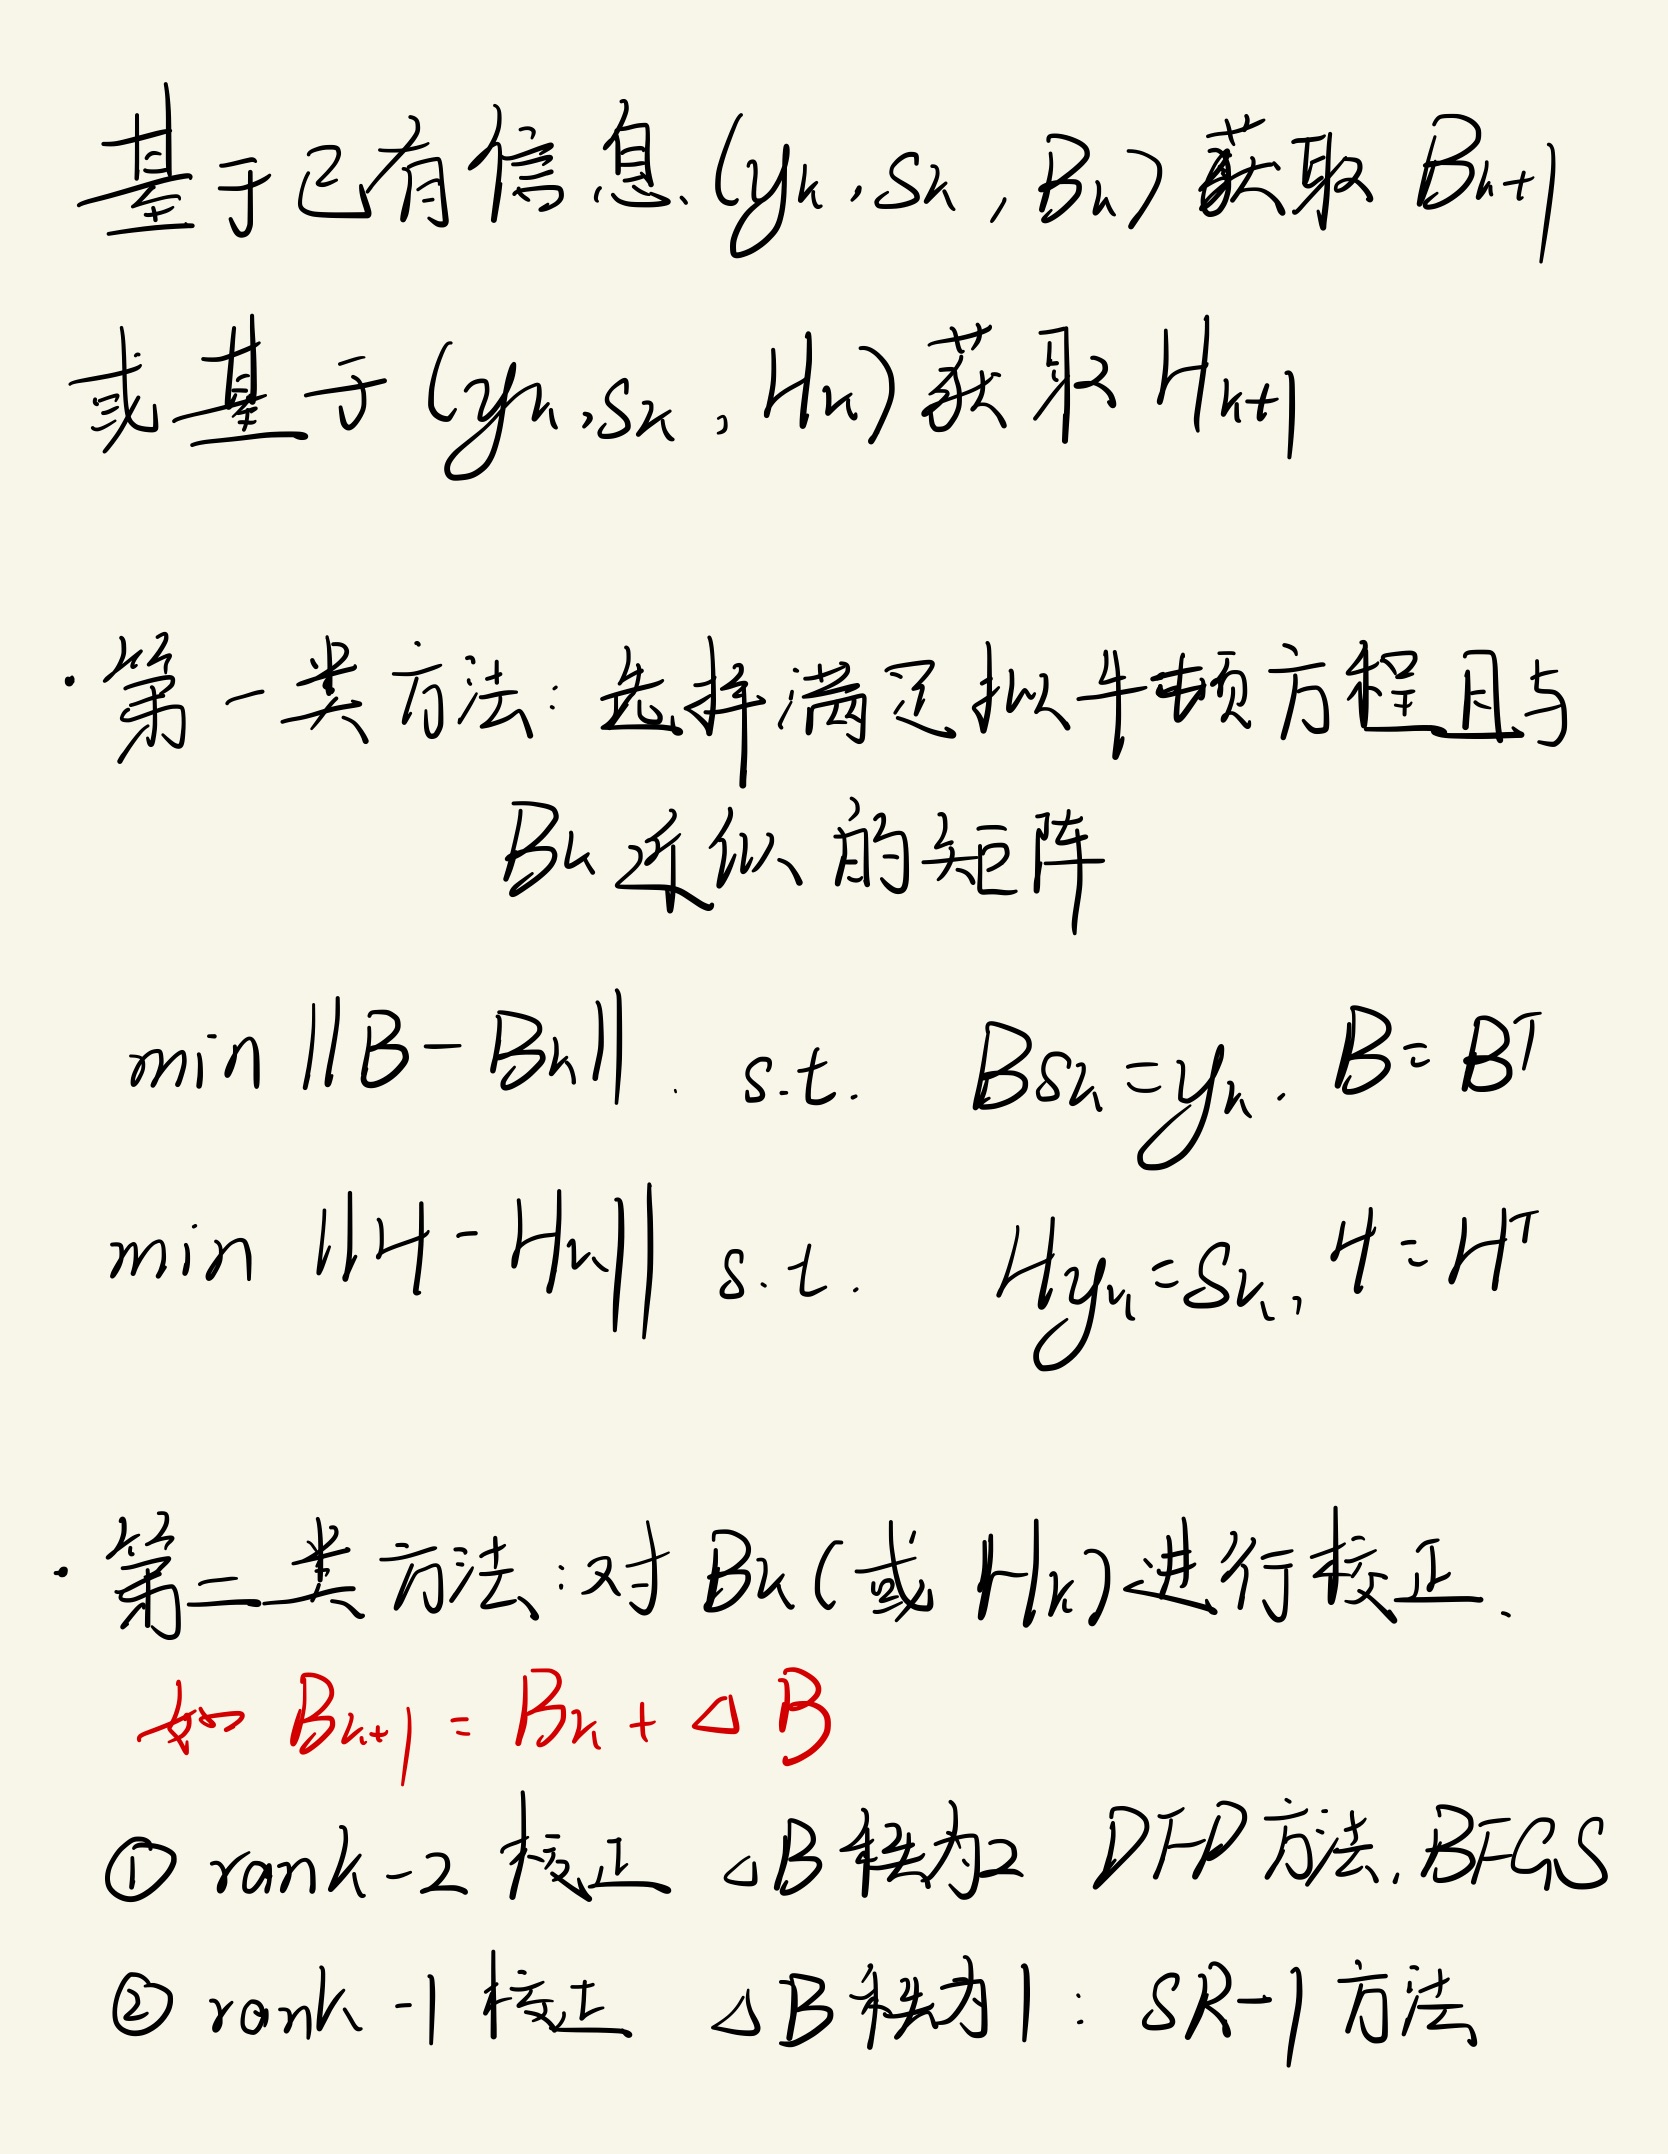 基于已有信息(yₖ,sₖ,Bₖ)获取 Bₖ₊₁
或基于(yₖ,sₖ,Hₖ)获取 Hₖ₊₁
·第一类方法:选择满足拟牛顿方程且与
Bₖ近似的矩阵
min ||B-Bₖ|| . s.t. Bsₖ=yₖ. B=Bᵀ
min ||H-Hₖ|| s.t. Hyₖ=sₖ, H=Hᵀ
·第二类方法:对Bₖ(或Hₖ)进行校正.
如 Bₖ₊₁=Bₖ+△B
① rank-2 校正 △B秩为2 DFP方法,BFGS
② rank-1 校正 △B秩为1: SR-1方法